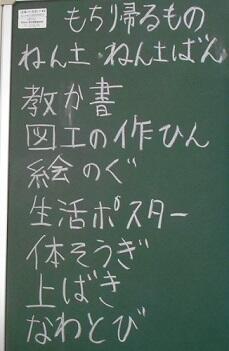 もち帰るもの
ねん土・ねん土ばん
教か書
図工の作ひん
絵のぐ
生活ポスター
体そうぎ
上ばき
なわとび